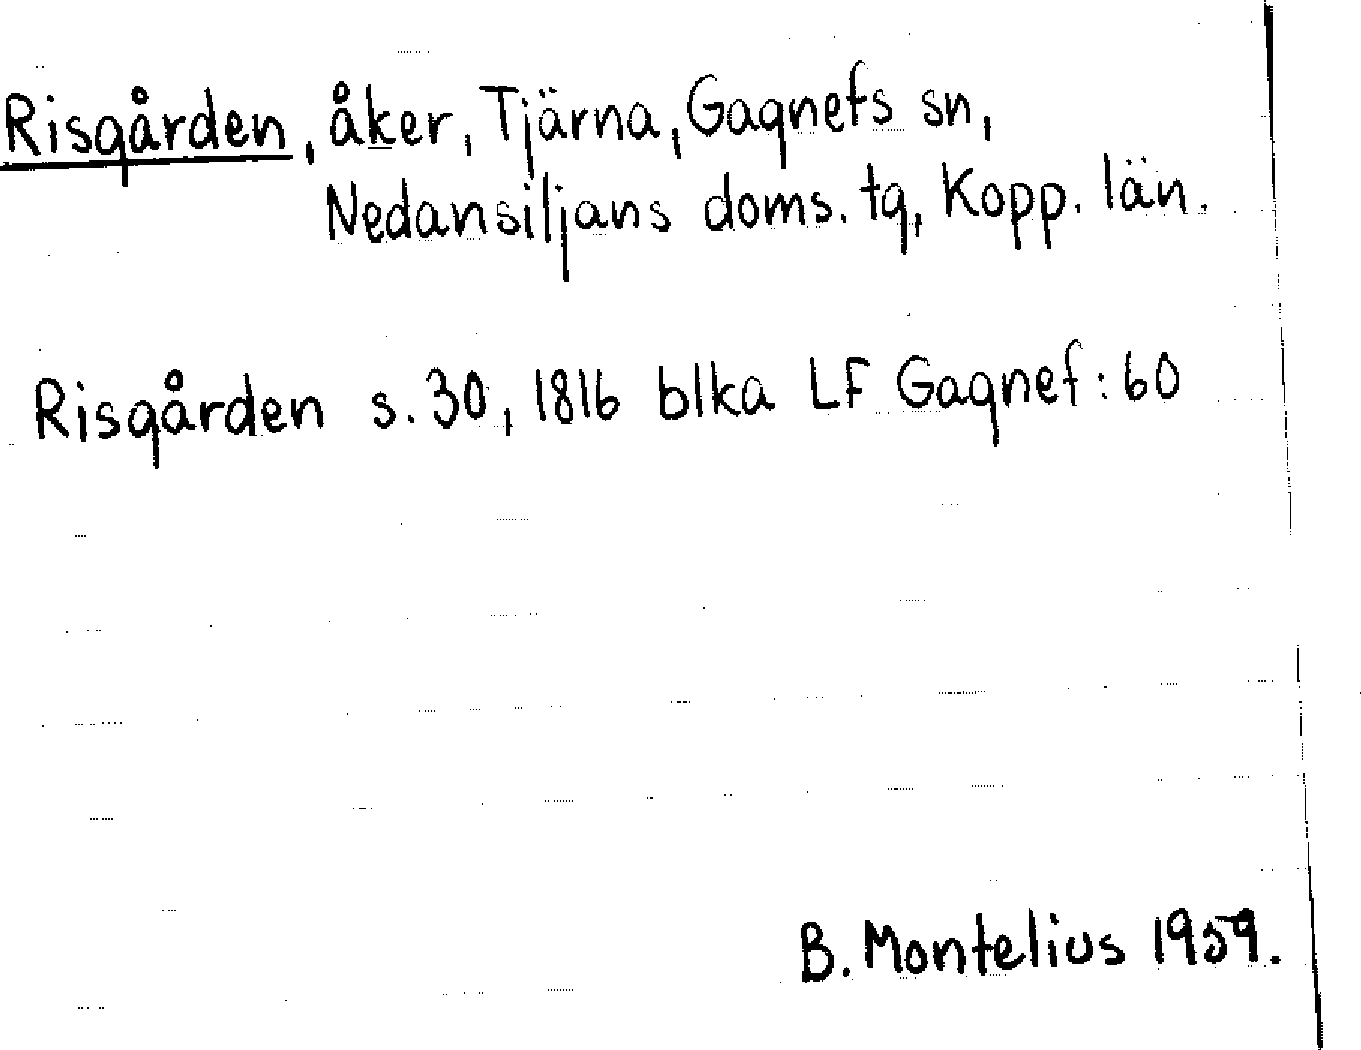 Risgården, åker, Tjärna, Gagnefs sn,
Nedansiljans doms. tg, Kopp. län.
Risgården s. 30, 1816 blka LF Gagnef: 60
B. Montelius 1959.